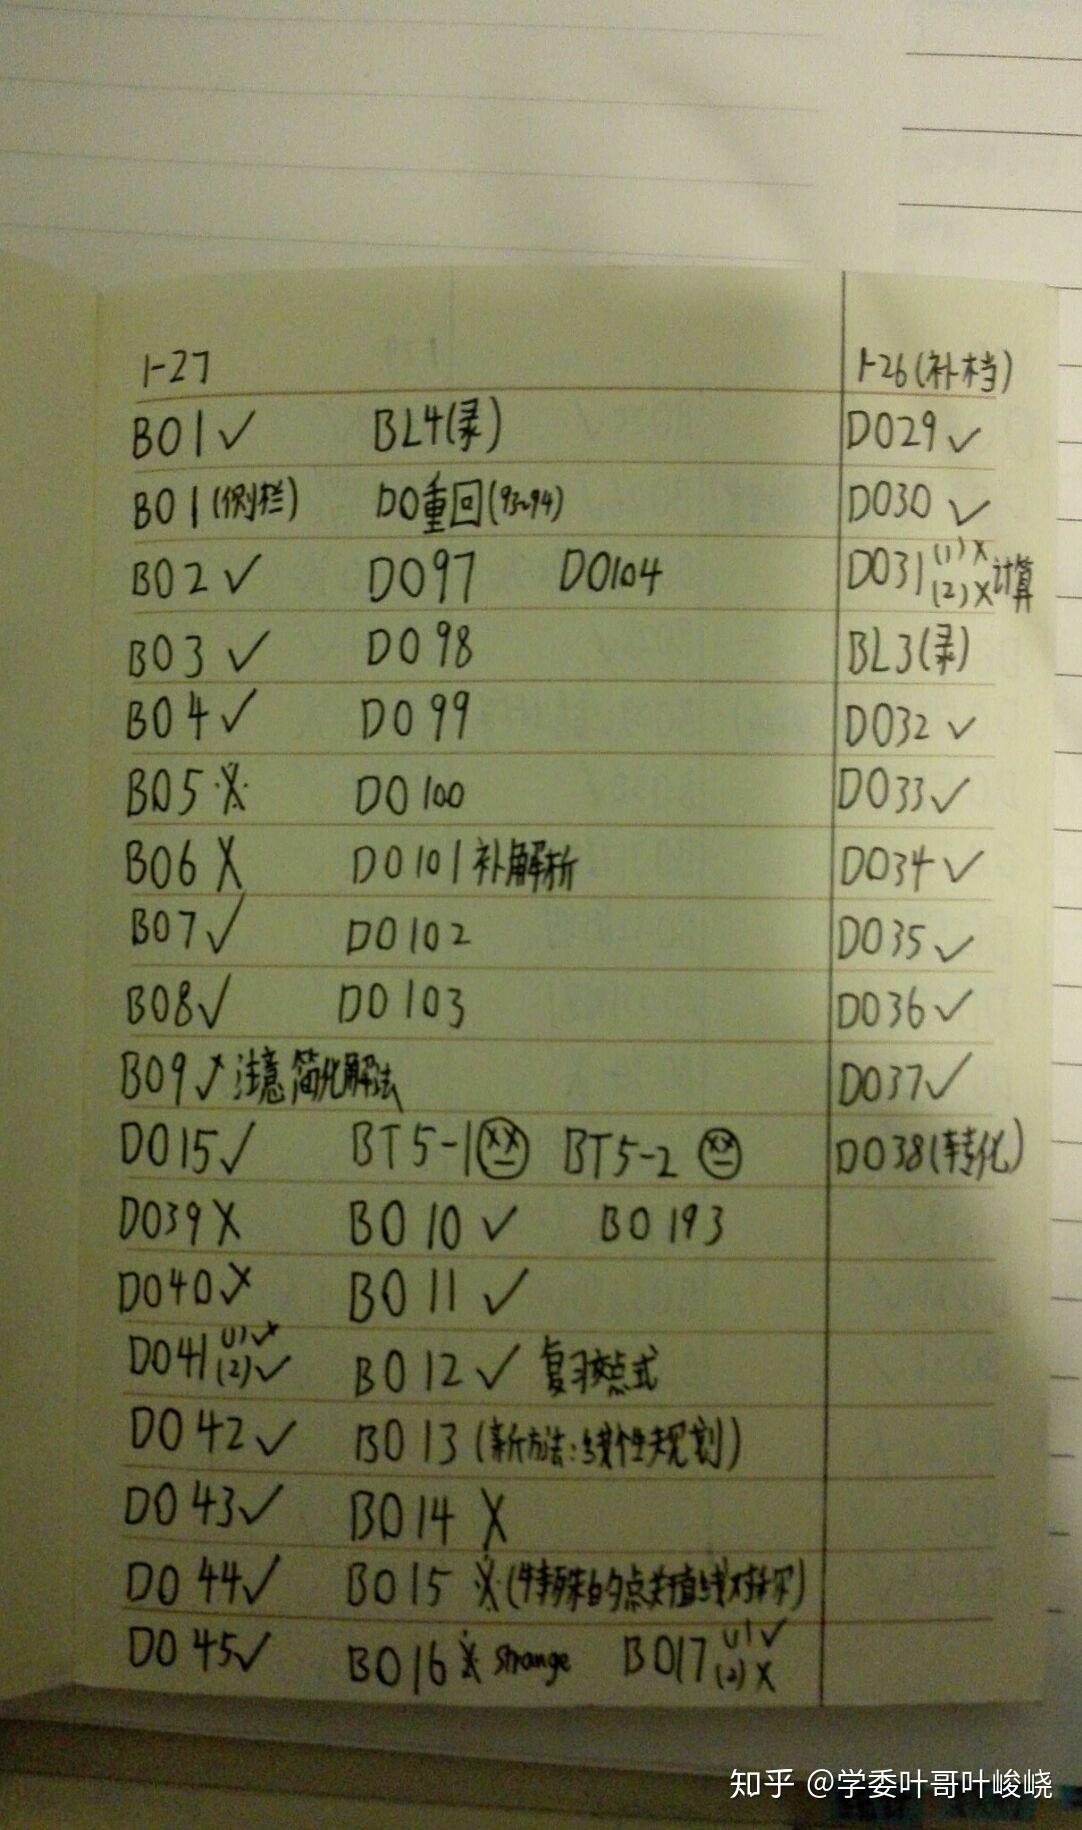 1-27
B01✓ BL4(录)
B01(侧栏) D0重回(93~94)
B02✓ D097 D0104
B03✓ D098
B04✓ D099
B05·X· D0100
B06 X D0101补解析
B07✓ D0102
B08✓ D0103
B09✓注意简化解法
D015✓ BT5-1 BT5-2
D039X B010✓ B0193
D040 B011✓
D041(1) (2)✓ B012✓ 复习交点式
D042✓ B013(新方法:线性规划)
D043✓ B014 X
D044✓ B015 ※(特殊的点关于直线对称)
D045✓ B016 ※ strange B017(1)✓(2)X
1-26(补档)
D029✓
D030✓
D031(1)X(2)X计算
BL3(录)
D032✓
D033✓
D034✓
D035✓
D036✓
D037✓
D038(转化)
知乎 @学委叶哥叶峻峣